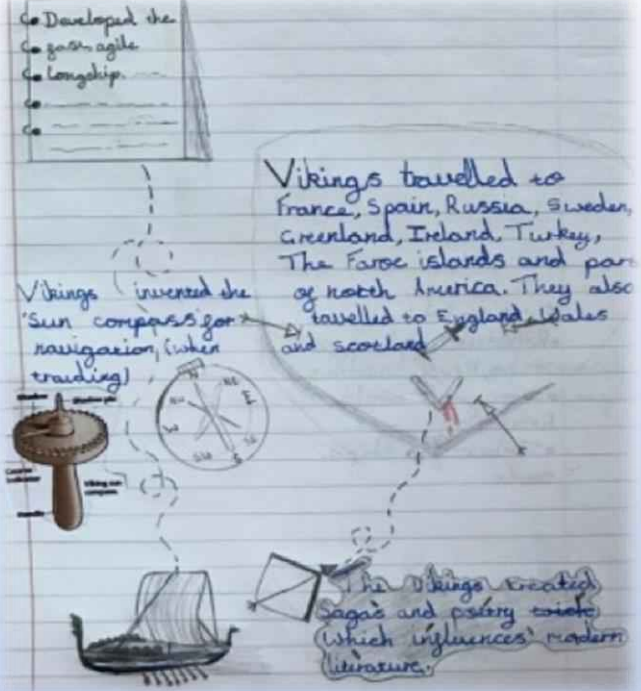 Developed the
fast, agile
longship.
Vikings travelled to
France, Spain, Russia, Sweden,
Greenland, Ireland, Turkey,
The Faroe islands and par
of north America. They also
tavelled to England, Wales
and scotland
Vikings invented the
"Sun compass" for
navigation, (when
traiding)
N
NE
E
SE
S
SW
W
NW
Shadow
Shadow pin
Course
indicator
Viking sun
compass
Handle
The Vikings created
Sagas and poetry
which influences modern
literature.